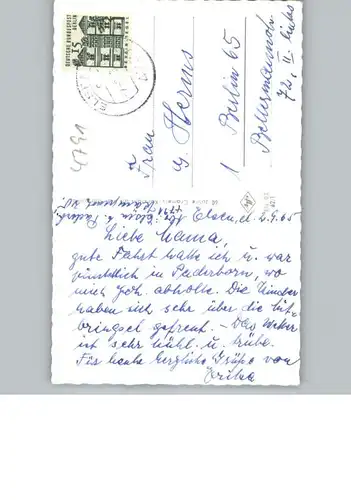 15
DEUTSCHE BUNDESPOST
BERLIN
4791
Frau
G. Herms
1 Berlin 65
72, II. links
4791 Elsen b. Paderb.
Elsen, d. 2.9.65
Liebe Mama,
gute Fahrt hatte ich u. war
pünktlich in Paderborn, wo
mich abholte. Die Kinder
haben sich sehr über die Mit-
bringsel gefreut. – Das Wetter
ist sehr kühl u. trübe.
Für heute herzliche Grüße von
Erika